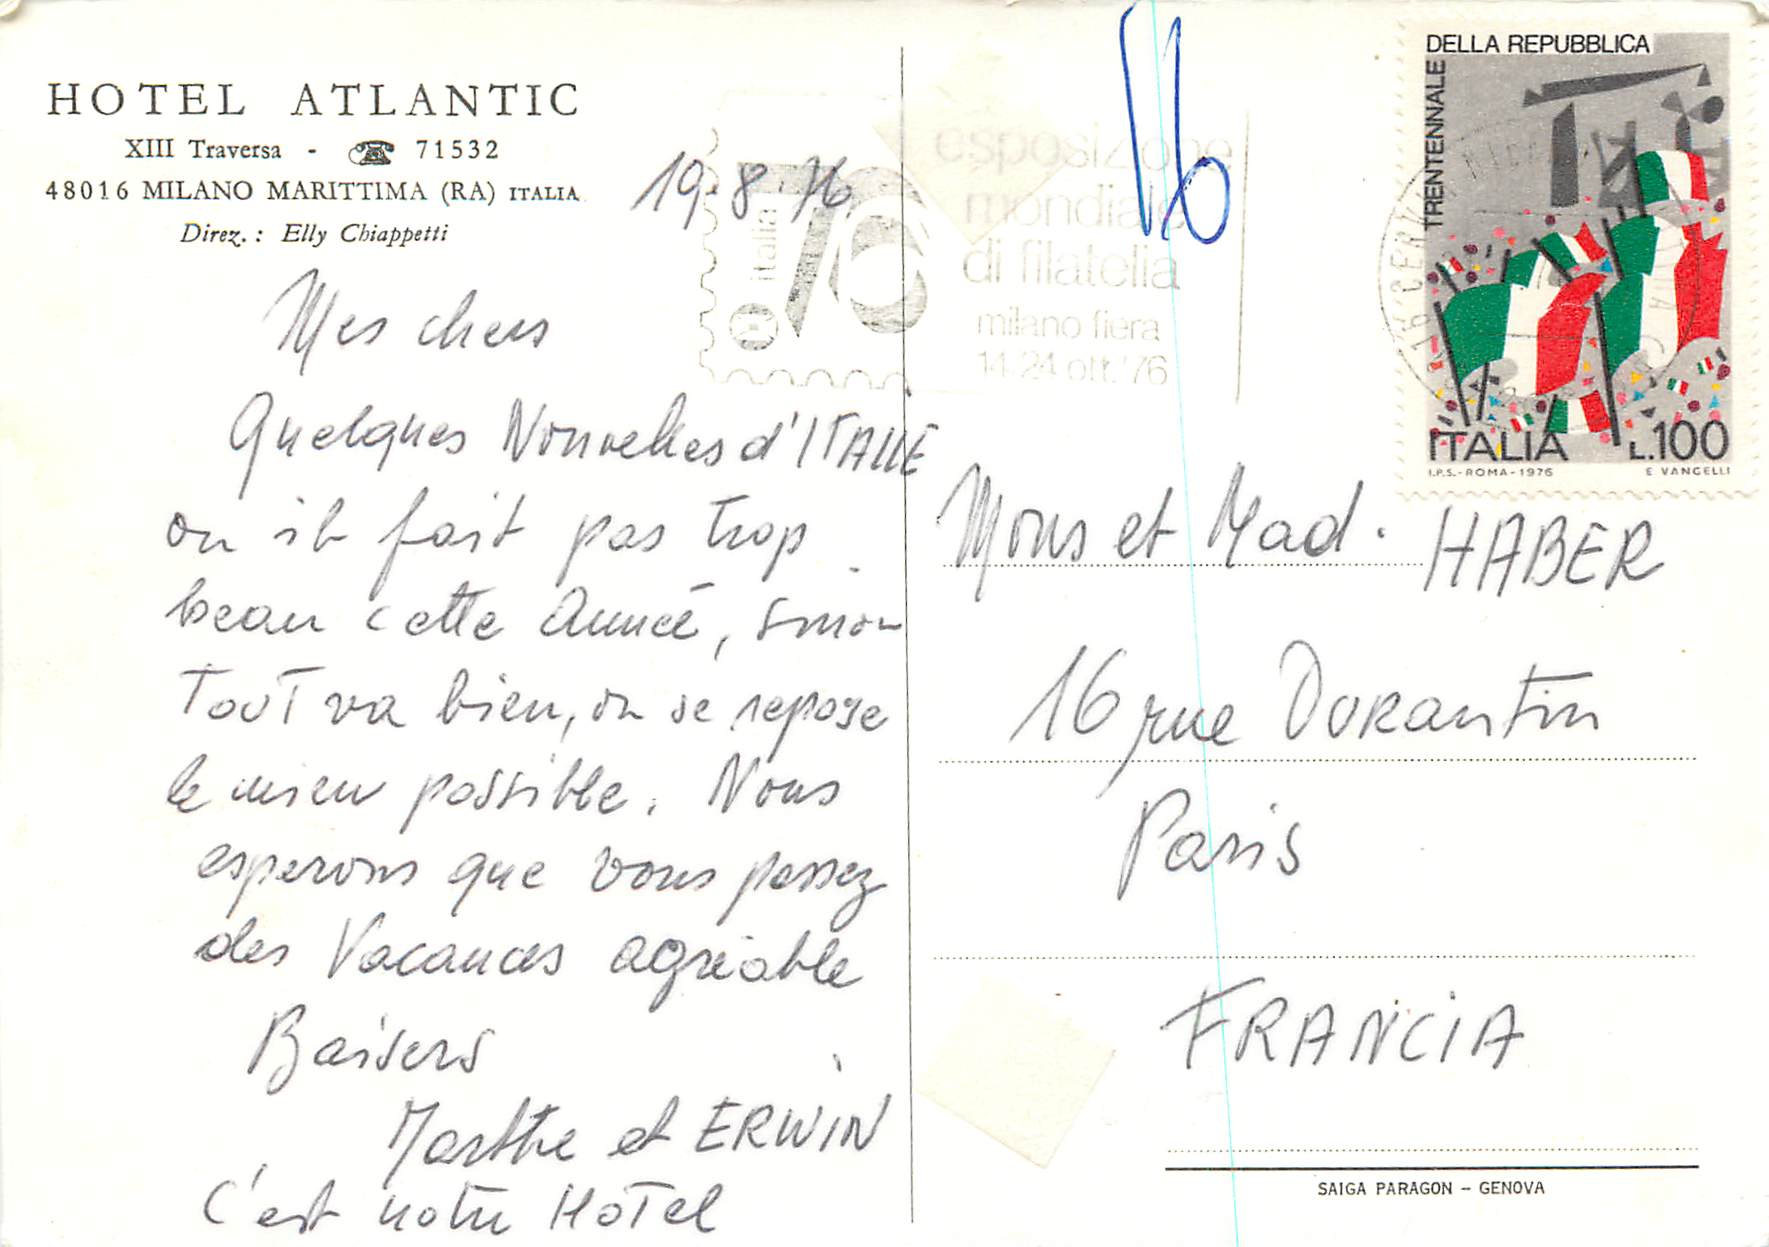 HOTEL ATLANTIC
XIII Traversa - ☎ 71532
48016 MILANO MARITTIMA (RA) ITALIA
Direz. : Elly Chiappetti
19.8.76
Mes chers
Quelques Nouvelles d'ITALIE
ou il fait pas trop
beau cette Année, sinon
Tout va bien, on se repose
le mieu possible. Nous
esperons que vous passez
des Vacances agréable
Baisers
Marthe et ERWIN
C'est notre HoTel
italia
76
esposizione
mondiale
di filatelia
milano fiera
14-24 ott. '76
16
DELLA REPUBBLICA
TRENTENNALE
ITALIA L.100
I.P.S.-ROMA-1976 E VANGELLI
Mons et Mad. HABER
16 rue DURantin
Paris
FRANCIA
SAIGA PARAGON - GENOVA